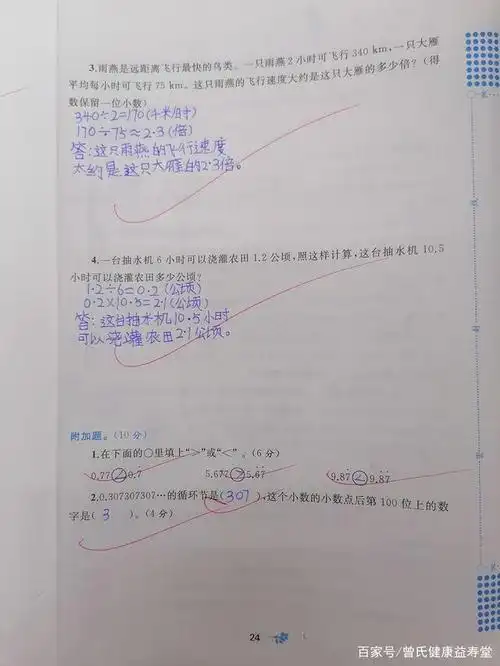 3.雨燕是远距离飞行最快的鸟类。一只雨燕2小时可飞行340 km,一只大雁
平均每小时可飞行75 km。这只雨燕的飞行速度大约是这只大雁的多少倍?(得
数保留一位小数)
340÷2=170(千米/时)
170÷75≈2.3(倍)
答:这只雨燕的飞行速度
大约是这只大雁的2.3倍。
4.一台抽水机6小时可以浇灌农田1.2公顷,照这样计算,这台抽水机10.5
小时可以浇灌农田多少公顷?
1.2÷6=0.2(公顷)
0.2×10.5=2.1(公顷)
答:这台抽水机10.5小时
可以浇灌农田2.1公顷。
附加题。(10分)
1.在下面的○里填上“>”或“<”。(6分)
2.0.307307307…的循环节是(307),这个小数的小数点后第100位上的数
字是( 3 )。(4分)
24
百家号/曾氏健康益寿堂